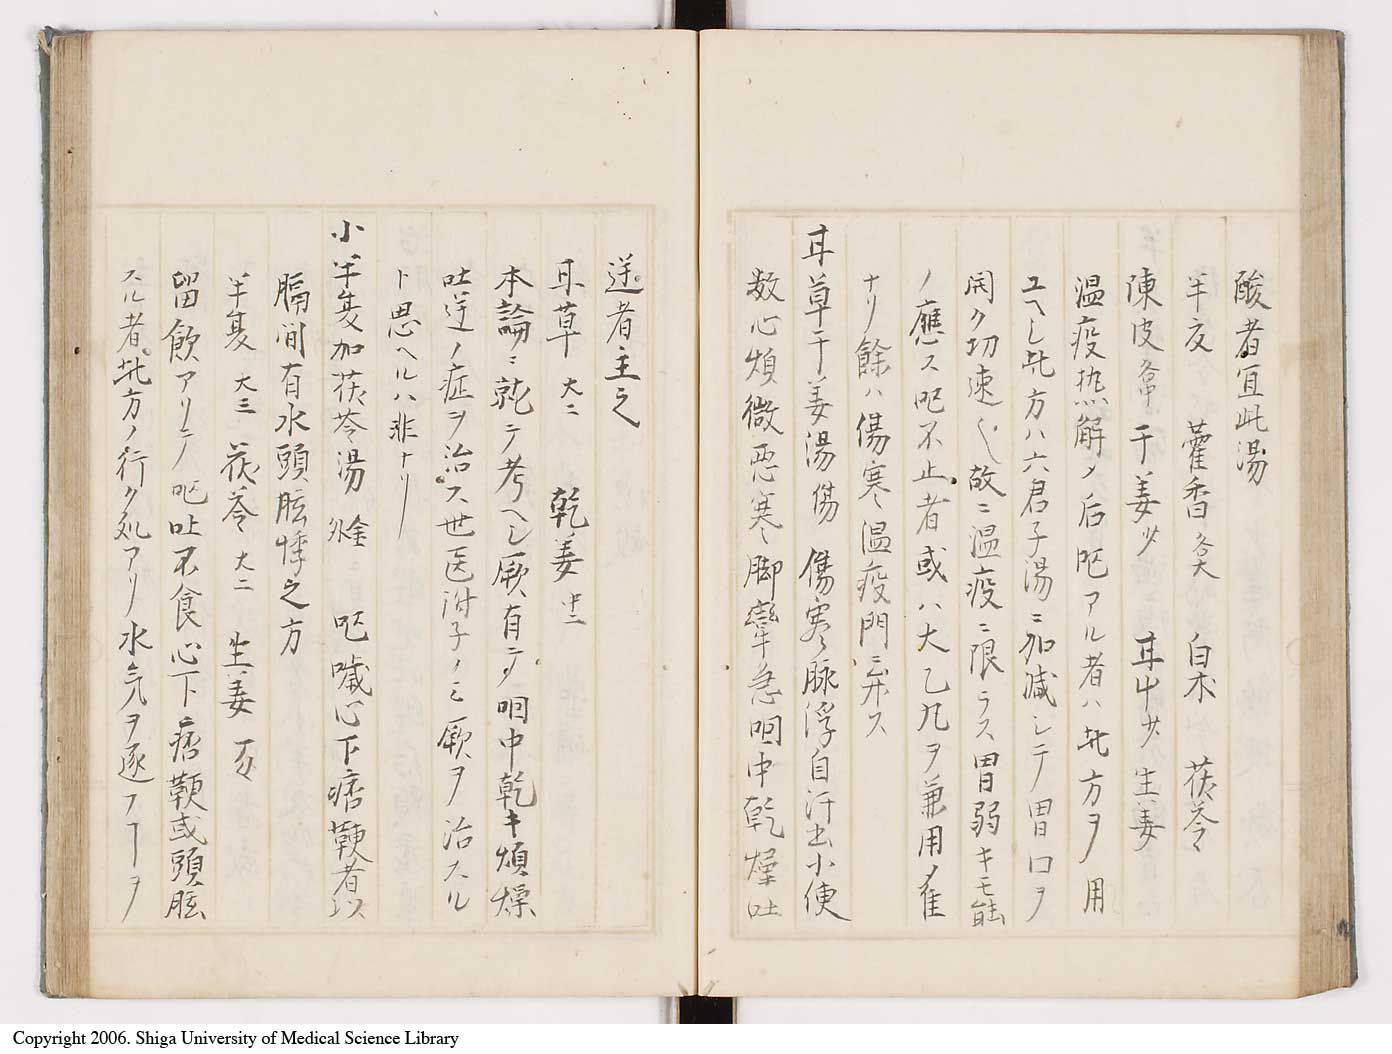 酸者宜此湯
半夏 藿香各大 白朮 茯苓
陳皮各中 干姜少 甘艸少 生姜
温疫热解メ后呕アル者ハ此方ヲ用
ユヘし此方ハ六君子湯ニ加減シテ胃口ヲ
開ク切速也故ニ温疫ニ限ラス胃弱キモ能
ノ應ス呕不止者或ハ大乙丸ヲ兼用メ隹
ナリ餘ハ傷寒温疫門ニ弁ス
甘草干姜湯傷 傷寒脉浮自汗出小便
数心煩微悪寒脚攣急咽中乾燥吐
逆者主之
甘草大二 乾姜中二
本論ニ就テ考ヘし厥有テ咽中乾キ煩燥
吐逆ノ症ヲ治ス世医附子ノミ厥ヲ治スル
ト思ヘルハ非ナリ
小半夏加茯苓湯 金 呕噦心下痞鞕者以
膈間有水頭眩悸之方
半夏大三 茯苓大二 生姜
留飲アリテ呕吐不食心下痞鞕或頭眩
スル者此方ノ行ク処アリ水気ヲ逐フヿヲ
Copyright 2006. Shiga University of Medical Science Library